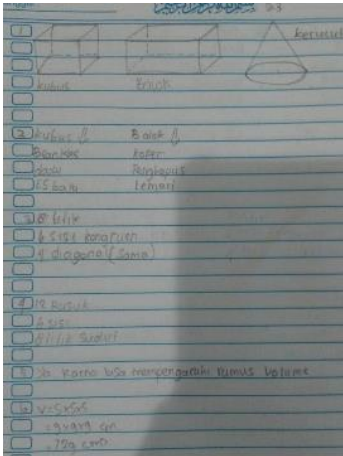 1 kerucut
kubus Balok
2 kubus Balok
Brankas koper
dadu Penghapus
ES batu Lemari
3 8 titik
6 sisi kongruen
4 diagonal (sama)
4 12 Rusuk
6 sisi
8 titik sudut
5 Ya karna bisa mempengaruhi rumus volume
6 V=S×S×S
=9×9×9 cm
=729 cm3